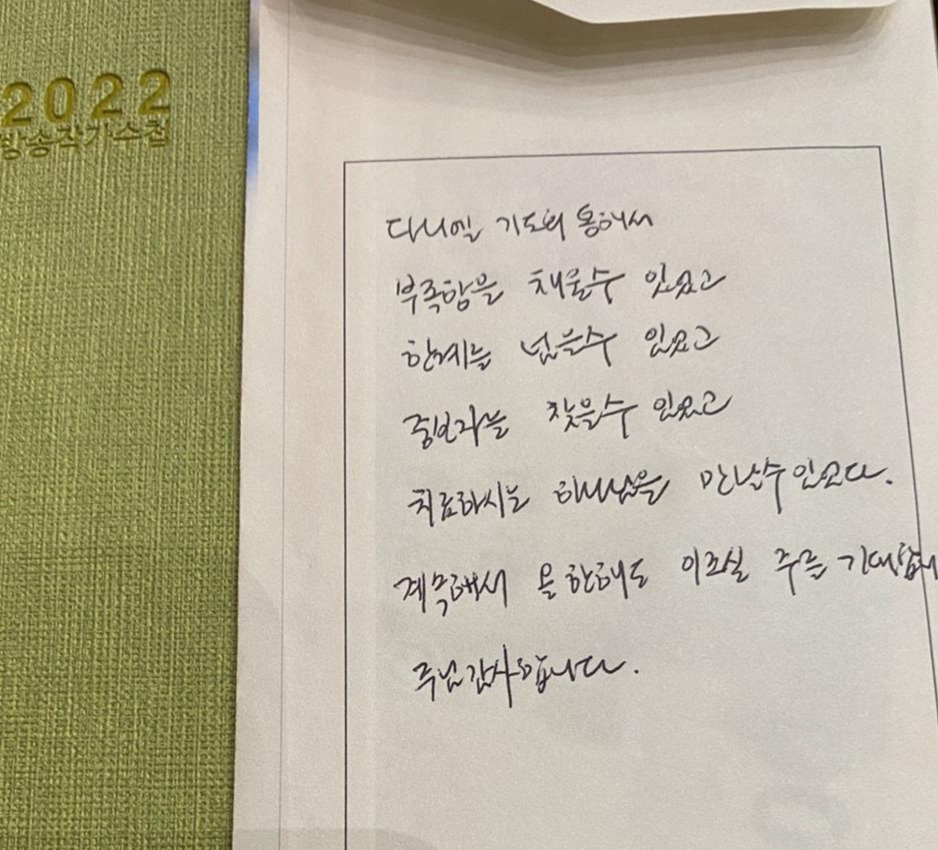 2022
방송작가수첩
다니엘 기도회 통해서
부족함을 채울수 있었고
한계를 넘을수 있었고
중보자를 찾을수 있었고
치료하시는 하나님을 만날수 있었다.
계속해서 올 한해도 이조실 주를
주님 감사합니다.